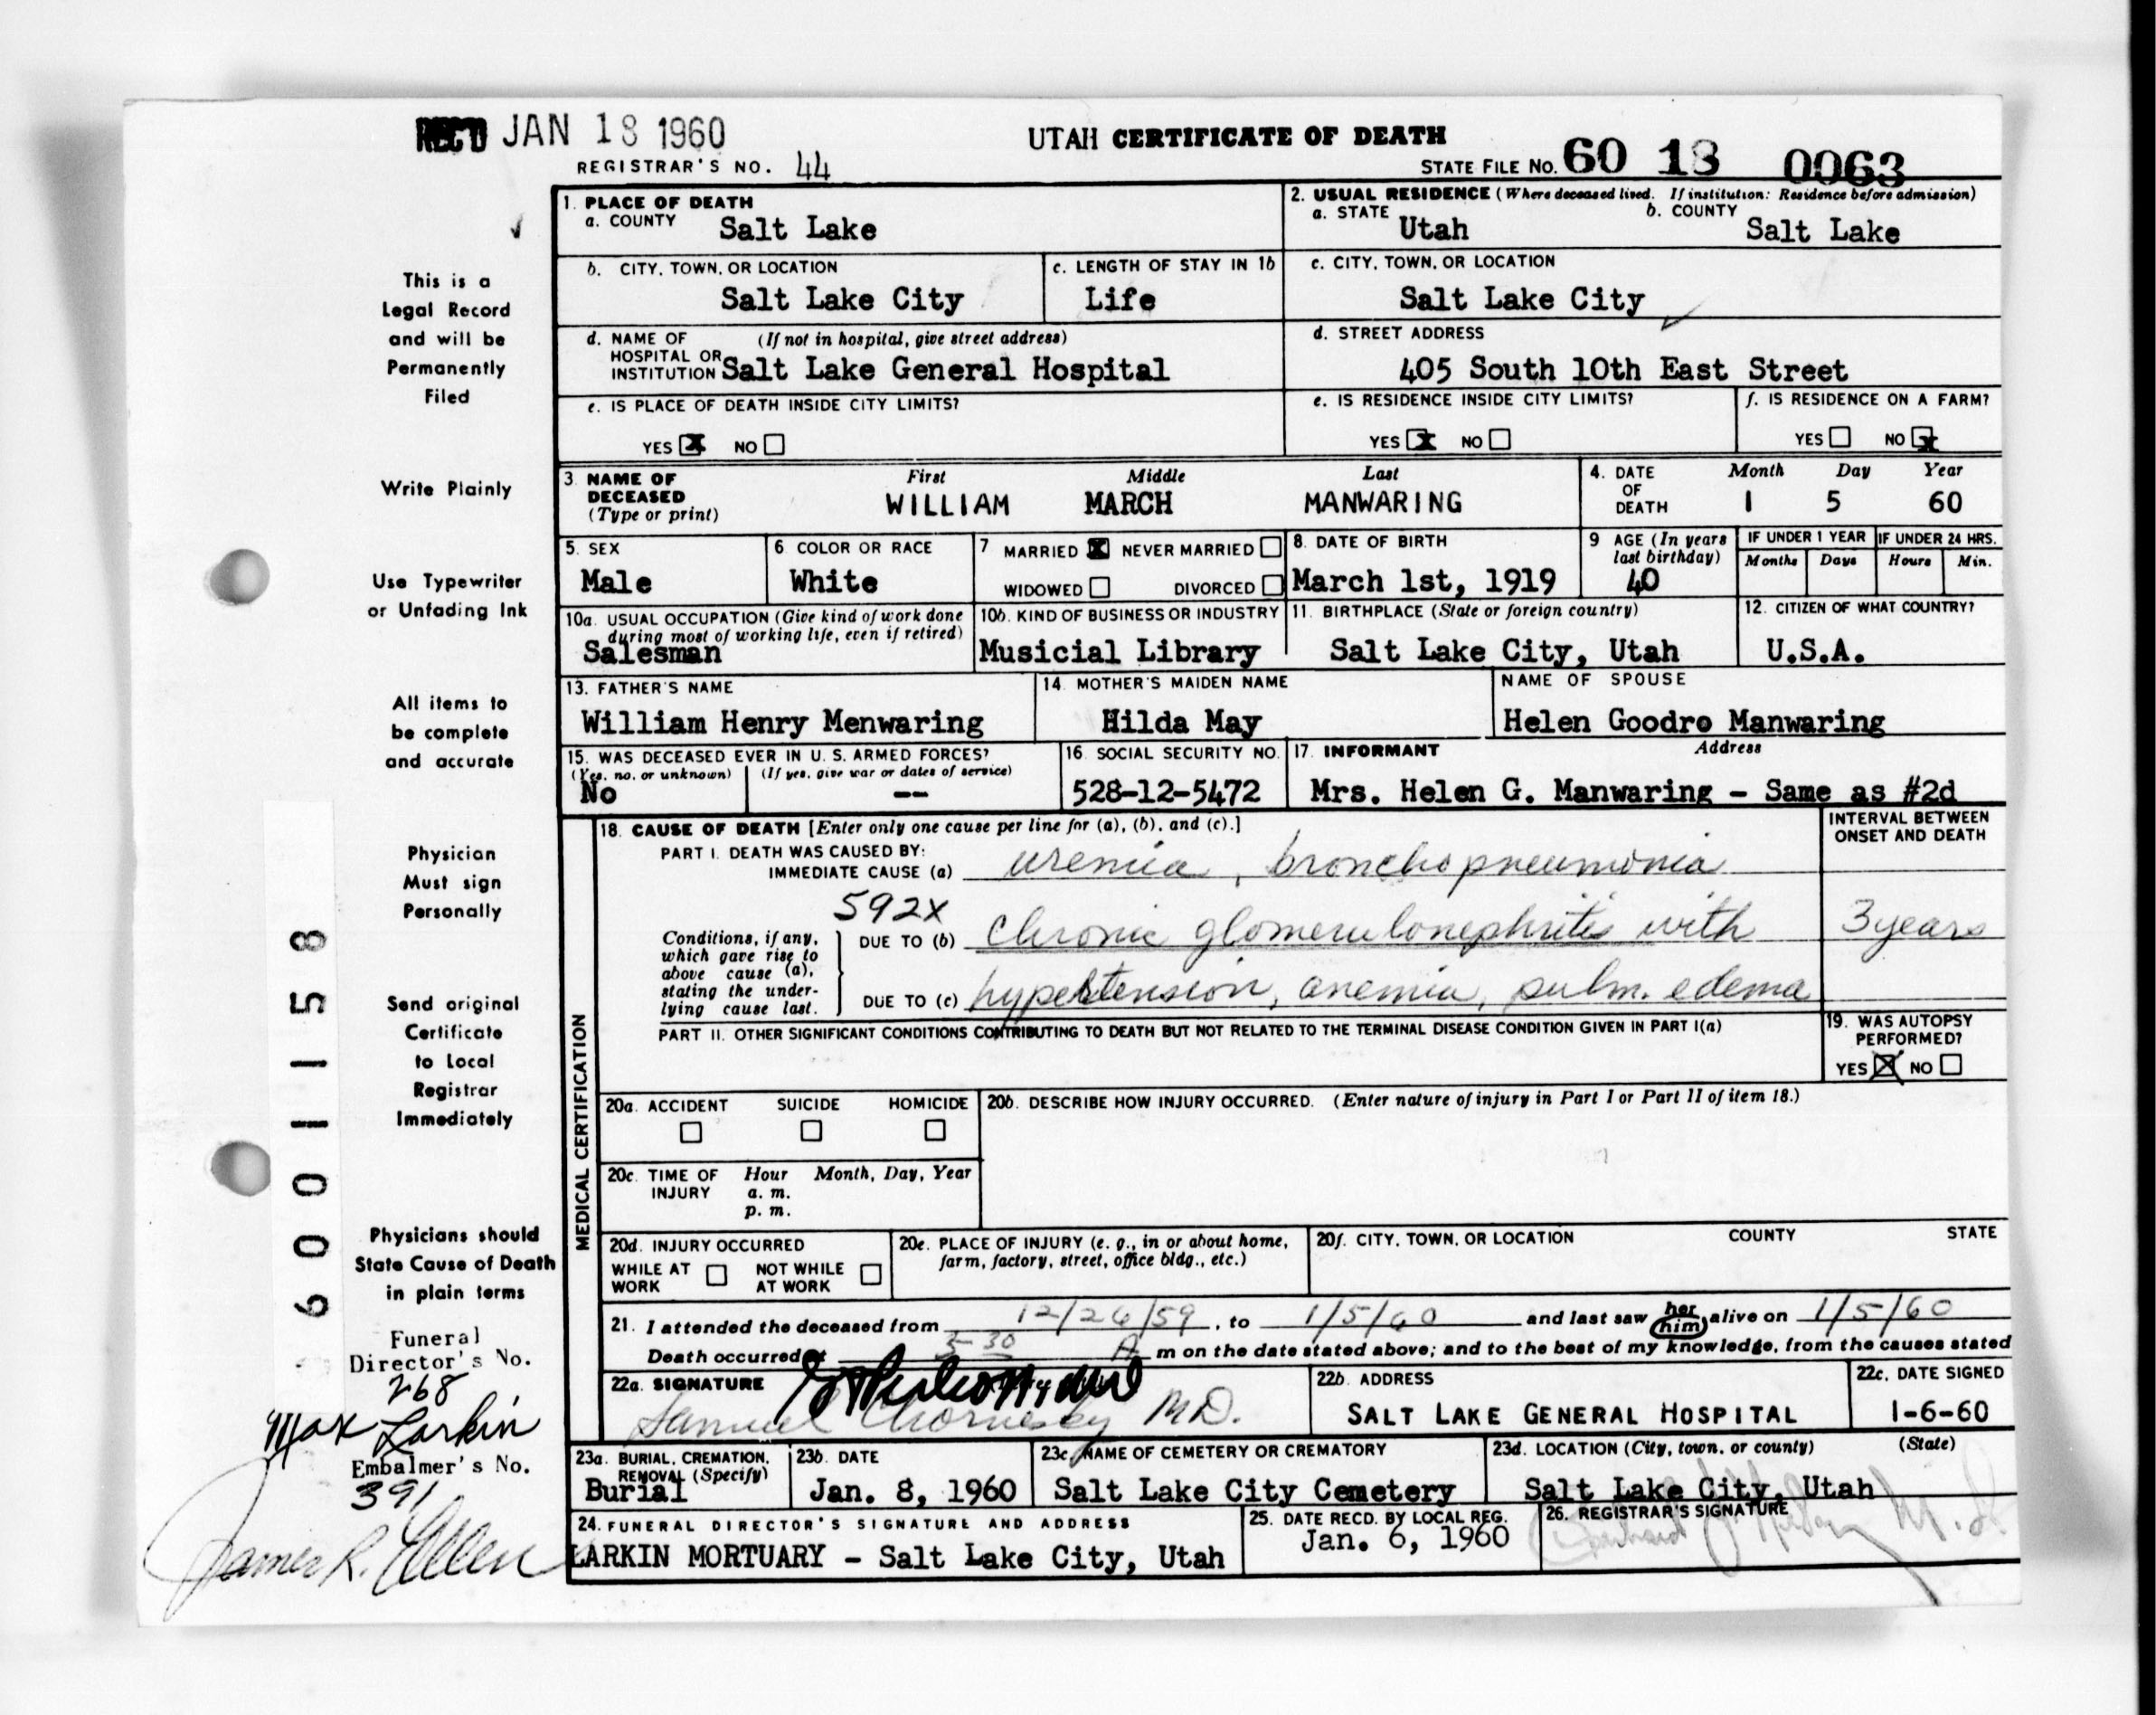 REC'D JAN 18 1960
UTAH CERTIFICATE OF DEATH
REGISTRAR'S NO. 44
STATE FILE NO. 60 18 0063
1. PLACE OF DEATH
a. COUNTY Salt Lake
2. USUAL RESIDENCE (Where deceased lived. If institution: Residence before admission)
a. STATE Utah b. COUNTY Salt Lake
b. CITY, TOWN, OR LOCATION Salt Lake City
c. LENGTH OF STAY IN 1b Life
c. CITY, TOWN, OR LOCATION Salt Lake City
d. NAME OF HOSPITAL OR INSTITUTION (If not in hospital, give street address) Salt Lake General Hospital
d. STREET ADDRESS 405 South 10th East Street
e. IS PLACE OF DEATH INSIDE CITY LIMITS?
YES X NO
e. IS RESIDENCE INSIDE CITY LIMITS?
YES X NO
f. IS RESIDENCE ON A FARM?
YES NO X
3. NAME OF DECEASED (Type or print) First Middle Last
WILLIAM MARCH MANWARING
4. DATE OF DEATH Month Day Year
1 5 60
5. SEX Male
6. COLOR OR RACE White
7 MARRIED X NEVER MARRIED
WIDOWED DIVORCED
8. DATE OF BIRTH March 1st, 1919
9 AGE (In years last birthday) 40
IF UNDER 1 YEAR IF UNDER 24 HRS.
Months Days Hours Min.
10a. USUAL OCCUPATION (Give kind of work done during most of working life, even if retired)
Salesman
10b. KIND OF BUSINESS OR INDUSTRY
Musicial Library
11. BIRTHPLACE (State or foreign country)
Salt Lake City, Utah
12. CITIZEN OF WHAT COUNTRY?
U.S.A.
13. FATHER'S NAME
William Henry Menwaring
14. MOTHER'S MAIDEN NAME
Hilda May
NAME OF SPOUSE
Helen Goodro Manwaring
15. WAS DECEASED EVER IN U. S. ARMED FORCES?
(Yes, no, or unknown) (If yes, give war or dates of service)
No --
16. SOCIAL SECURITY NO.
528-12-5472
17. INFORMANT Address
Mrs. Helen G. Manwaring - Same as #2d
MEDICAL CERTIFICATION
18. CAUSE OF DEATH [Enter only one cause per line for (a), (b), and (c).]
INTERVAL BETWEEN ONSET AND DEATH
PART I. DEATH WAS CAUSED BY:
IMMEDIATE CAUSE (a) uremia, bronchopneumonia
592X
Conditions, if any, which gave rise to above cause (a), stating the underlying cause last.
DUE TO (b) Chronic glomerulonephritis with 3 years
DUE TO (c) hypertension, anemia, pulm. edema
PART II. OTHER SIGNIFICANT CONDITIONS CONTRIBUTING TO DEATH BUT NOT RELATED TO THE TERMINAL DISEASE CONDITION GIVEN IN PART I(a)
19. WAS AUTOPSY PERFORMED?
YES X NO
20a. ACCIDENT SUICIDE HOMICIDE
20b. DESCRIBE HOW INJURY OCCURRED. (Enter nature of injury in Part I or Part II of item 18.)
20c. TIME OF INJURY Hour Month, Day, Year
a. m.
p. m.
20d. INJURY OCCURRED
WHILE AT WORK NOT WHILE AT WORK
20e. PLACE OF INJURY (e. g., in or about home, farm, factory, street, office bldg., etc.)
20f. CITY, TOWN, OR LOCATION COUNTY STATE
21. I attended the deceased from 12/26/59, to 1/5/60 and last saw her him alive on 1/5/60
Death occurred at 5 30 A m on the date stated above; and to the best of my knowledge, from the causes stated
22a. SIGNATURE
Samuel M.D.
22b. ADDRESS
SALT LAKE GENERAL HOSPITAL
22c. DATE SIGNED
1-6-60
23a. BURIAL, CREMATION, REMOVAL (Specify)
Burial
23b. DATE
Jan. 8, 1960
23c. NAME OF CEMETERY OR CREMATORY
Salt Lake City Cemetery
23d. LOCATION (City, town, or county) (State)
Salt Lake City, Utah
24. FUNERAL DIRECTOR'S SIGNATURE AND ADDRESS
LARKIN MORTUARY - Salt Lake City, Utah
25. DATE RECD. BY LOCAL REG.
Jan. 6, 1960
26. REGISTRAR'S SIGNATURE
This is a
Legal Record
and will be
Permanently
Filed
Write Plainly
Use Typewriter
or Unfading Ink
All items to
be complete
and accurate
Physician
Must sign
Personally
Send original
Certificate
to Local
Registrar
Immediately
Physicians should
State Cause of Death
in plain terms
Funeral
Director's No.
268
Max Larkin
Embalmer's No.
391
James R. Ellen
6001158